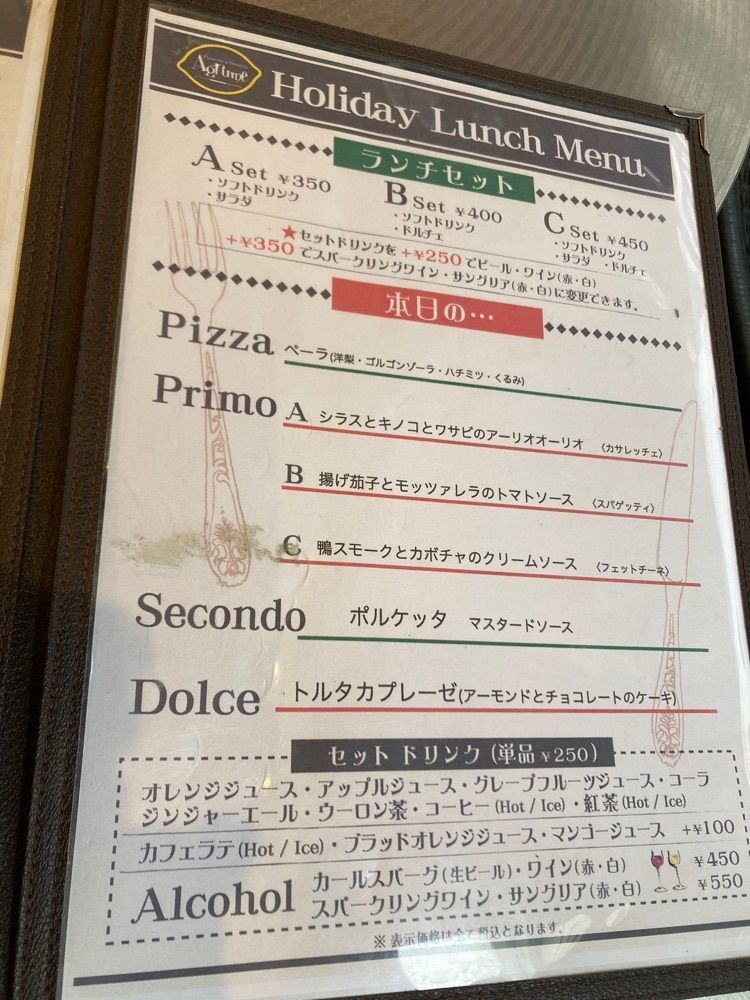 Agrume
Holiday Lunch Menu
ランチセット
A Set ¥350
・ソフトドリンク
・サラダ
B Set ¥400
・ソフトドリンク
・ドルチェ
C Set ¥450
・ソフトドリンク
・サラダ ・ドルチェ
★セットドリンクを +¥250 でビール・ワイン(赤・白)
+¥350 でスパークリングワイン・サングリア(赤・白)に変更できます。
本日の…
Pizza ペーラ(洋梨・ゴルゴンゾーラ・ハチミツ・くるみ)
Primo A シラスとキノコとワサビのアーリオオーリオ 〈カサレッチェ〉
B 揚げ茄子とモッツァレラのトマトソース 〈スパゲッティ〉
C 鴨スモークとカボチャのクリームソース 〈フェットチーネ〉
Secondo ポルケッタ マスタードソース
Dolce トルタカプレーゼ(アーモンドとチョコレートのケーキ)
セットドリンク(単品 ¥250)
オレンジジュース・アップルジュース・グレープフルーツジュース・コーラ
ジンジャーエール・ウーロン茶・コーヒー(Hot / Ice)・紅茶(Hot / Ice)
カフェラテ(Hot / Ice)・ブラッドオレンジジュース・マンゴージュース +¥100
Alcohol カールスバーグ(生ビール)・ワイン(赤・白) ¥450
スパークリングワイン・サングリア(赤・白) ¥550
※ 表示価格は全て税込となります。